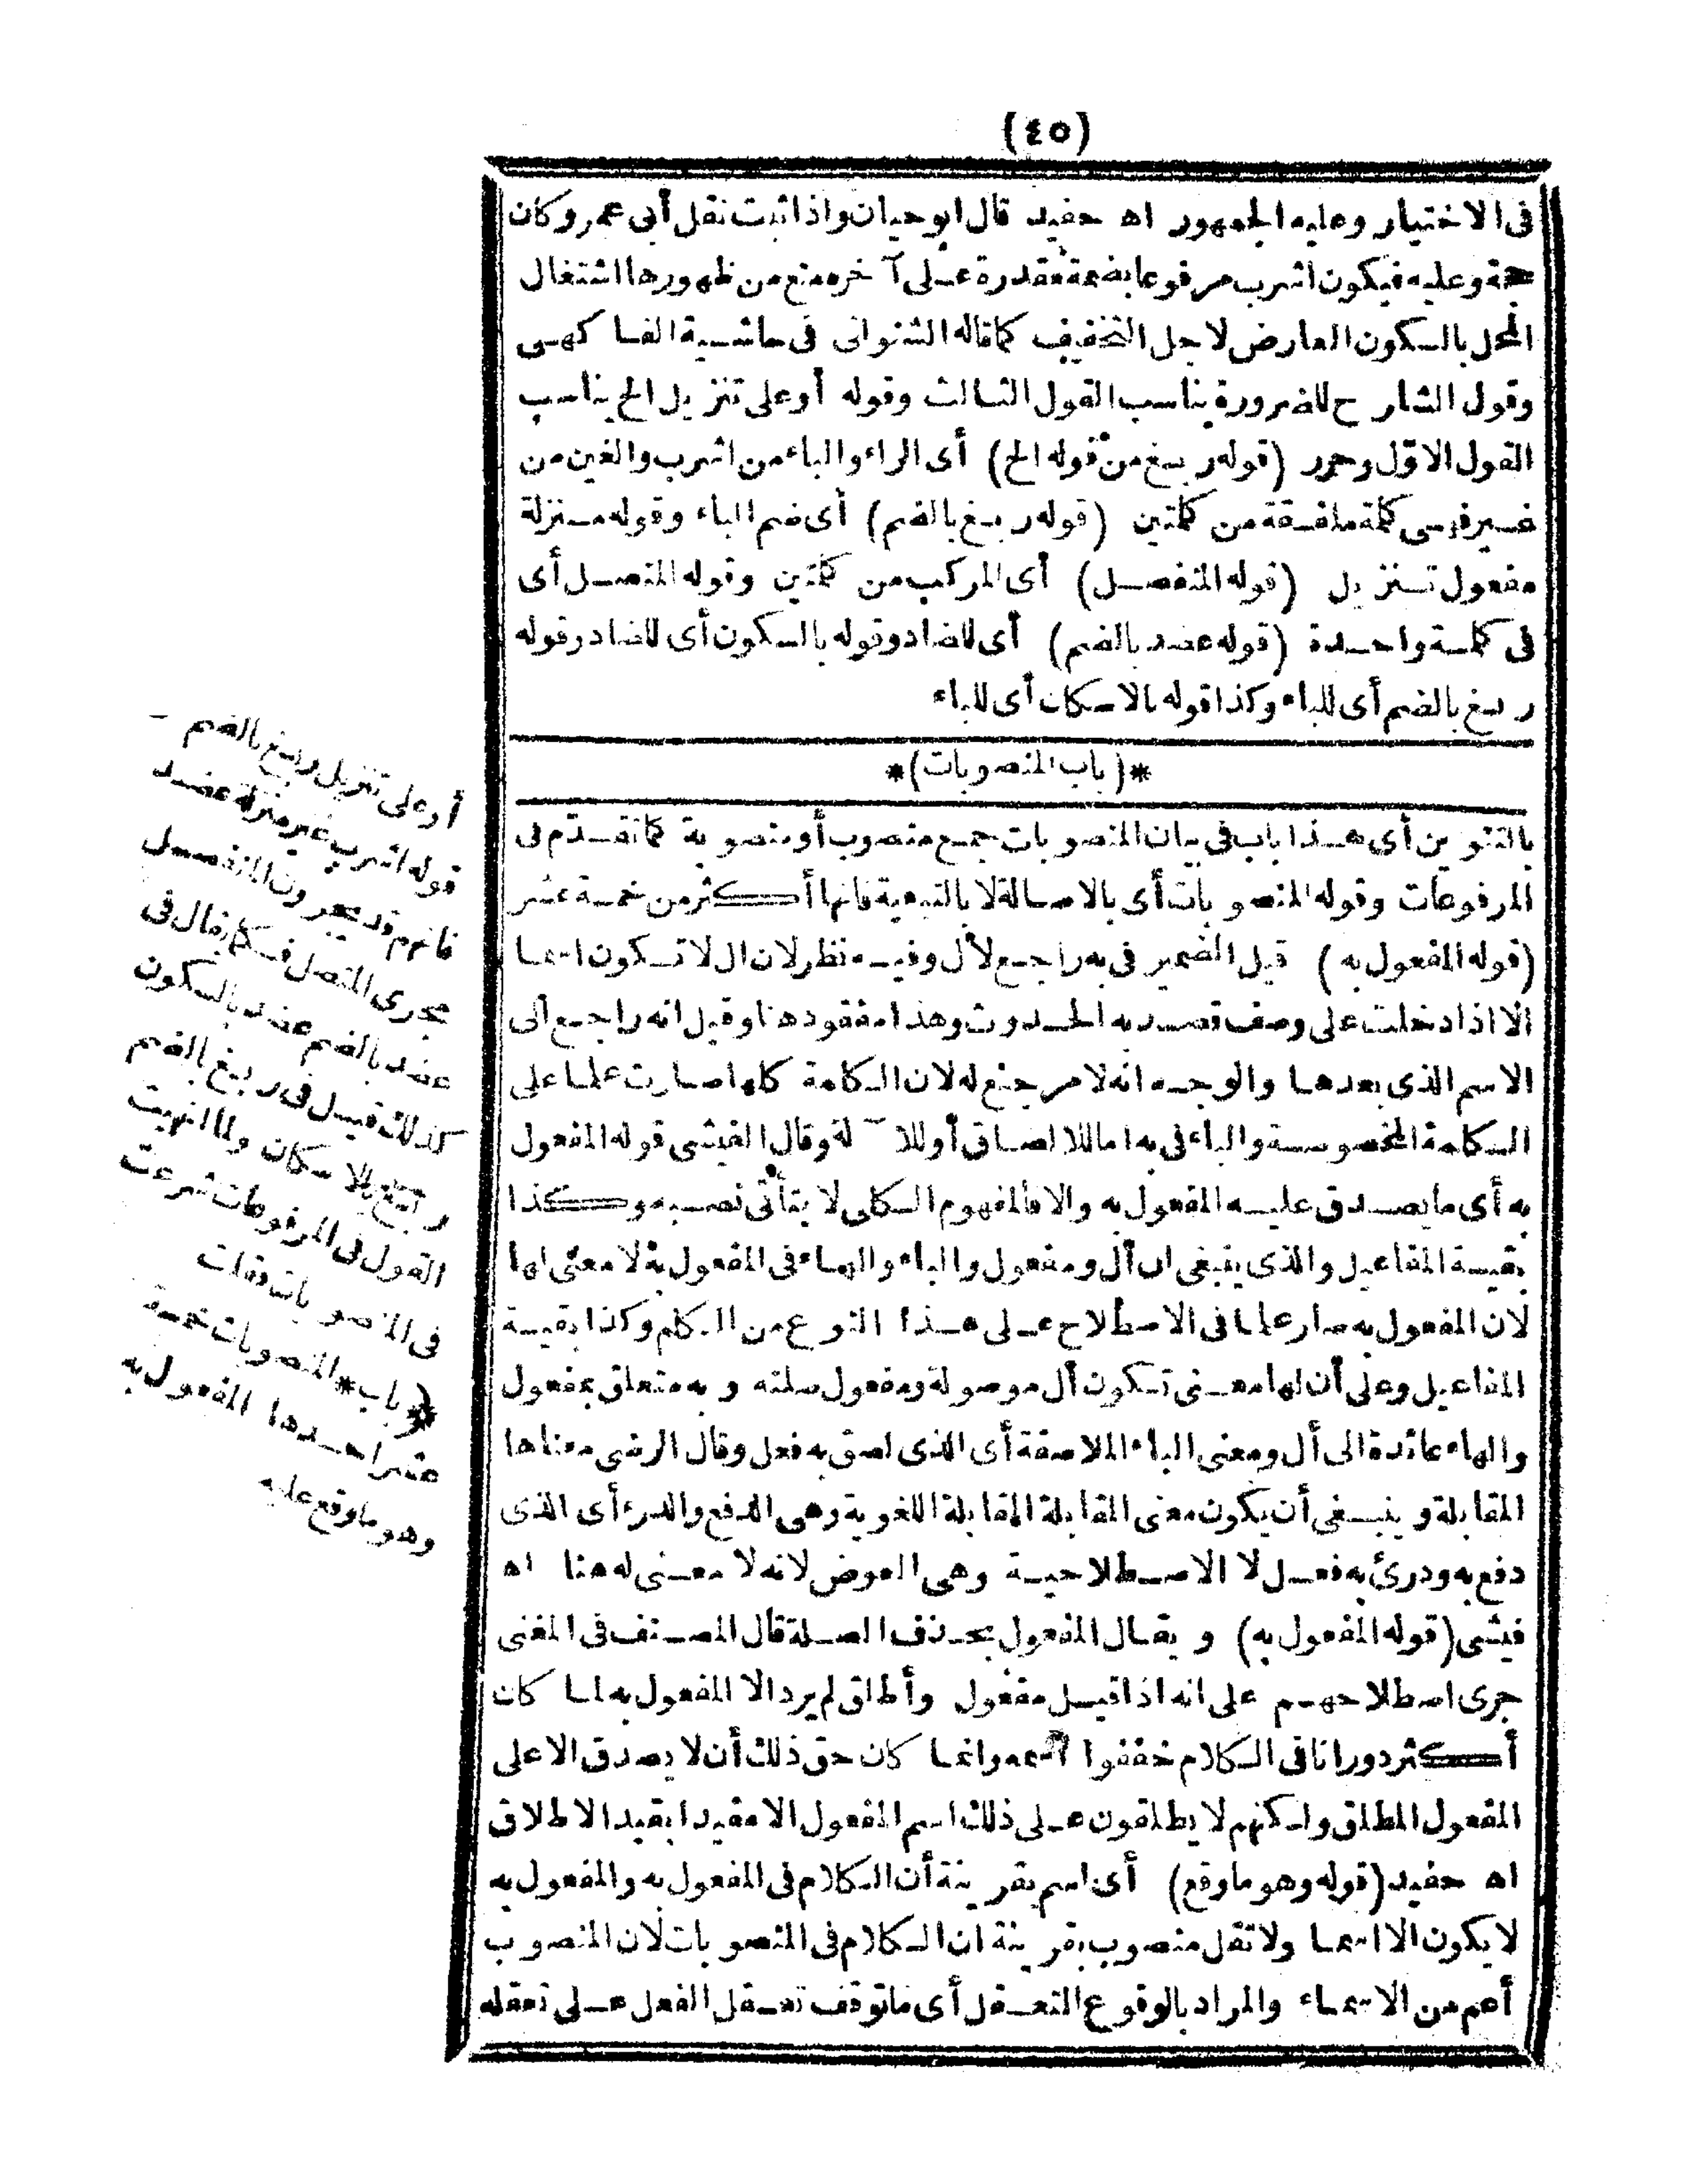 (٤٥)
فى الاختيار وعليه الجمهور اه حفيد قال ابو حيان واذا ثبت نقل أبى عمرو كان
حجة وعليه فيكون اشرب مرفوعا بضمة مقدرة على آخره منع من ظهورها اشتغال
المحل بالسكون العارض لاجل التخفيف كما قاله الشنوانى فى حاشية الفاكهى
وقول الشارح للضرورة يناسب القول الثالث وقوله أو على تنزيل الخ يناسب
القول الاوّل وحرر (قوله ر بغ من قوله الخ) أى الراء والباء من اشرب والغين من
غير فهى كلمة ملفقة من كلمتين (قوله ر بغ بالضم) أى ضم الباء وقوله منزلة
مفعول تنزيل (قوله المنفصل) أى المركب من كلمتين وقوله المتصل أى
فى كلمة واحدة (قوله عضد بالضم) أى للضاد وقوله بالسكون أى للضاد وقوله
ر بغ بالضم أى للباء وكذا قوله بالاسكان أى للباء
*(باب المنصوبات)*
بالتنوين أى هذا باب فى بيان المنصوبات جمع منصوب أو منصوبة كما تقدّم فى
المرفوعات وقوله المنصوبات أى بالاصالة لا بالتبعية فانها أكثر من خمسة عشر
(قوله المفعول به) قيل الضمير فى به راجع لأل وفيه نظر لان ال لا تكون اسما
الا اذا دخلت على وصف قصد به الحدوث وهذا مفقود هنا وقيل انه راجع الى
الاسم الذى بعدها والوجه انه لا مرجع له لان الكلمة كلها صارت علما على
الكلمة المخصوصة والباء فى به اما للالصاق أو للآلة وقال الفيشى قوله المفعول
به أى ما يصدق عليه المفعول به والا فالمفهوم الكلى لا يتأتى نصبه وكذا
بقية المفاعيل والذى ينبغى ان أل ومفعول والباء والهاء فى المفعول به لا معنى لها
لان المفعول به صار علما فى الاصطلاح على هذا النوع من الكلم وكذا بقية
المفاعيل وعلى أن لها معنى تكون أل موصولة ومفعول صلته و به متعلق بمفعول
والهاء عائدة الى أل ومعنى الباء الملاصقة أى الذى لصق به فعل وقال الرضى معناها
المقابلة وينبغى أن يكون معنى المقابلة المقابلة اللغوية وهى الدفع والدرء أى الذى
دفع به ودرئ به فعل لا الاصطلاحية وهى العوض لانه لا معنى له هنا اه
فيشى (قوله المفعول به) ويقال المفعول بحذف الصلة قال المصنف فى المغنى
جرى اصطلاحهم على انه اذا قيل مفعول وأطلق لم يرد الا المفعول به لما كان
أكثر دورانا فى الكلام خففوا اسمه وانما كان حق ذلك أن لا يصدق الا على
المفعول المطلق ولكنهم لا يطلقون على ذلك اسم المفعول الا مقيدا بقيد الاطلاق
اه حفيد (قوله وهو ما وقع) أى اسم بقرينة أن الكلام فى المفعول به والمفعول به
لا يكون الا اسما ولا تقل منصوب بقرينة ان الكلام فى المنصوبات لان المنصوب
أعم من الاسماء والمراد بالوقوع التعقل أى ما توقف تعقل الفعل على تعقله
أو على تنزيل ر بغ بالضم
قوله اشرب غير منزلة عضد
فانهم قد يجرون المنفصل
مجرى المتصل فكما يقال فى
عضد بالضم عضد بالسكون
كذلك قيل فى ر بغ بالضم
ر بغ بالاسكان ولما انهيت
القول فى المرفوعات شرعت
فى المنصوبات فقلت
*(باب* المنصوبات خمسة
عشر احدها المفعول به
وهو ما وقع عليه